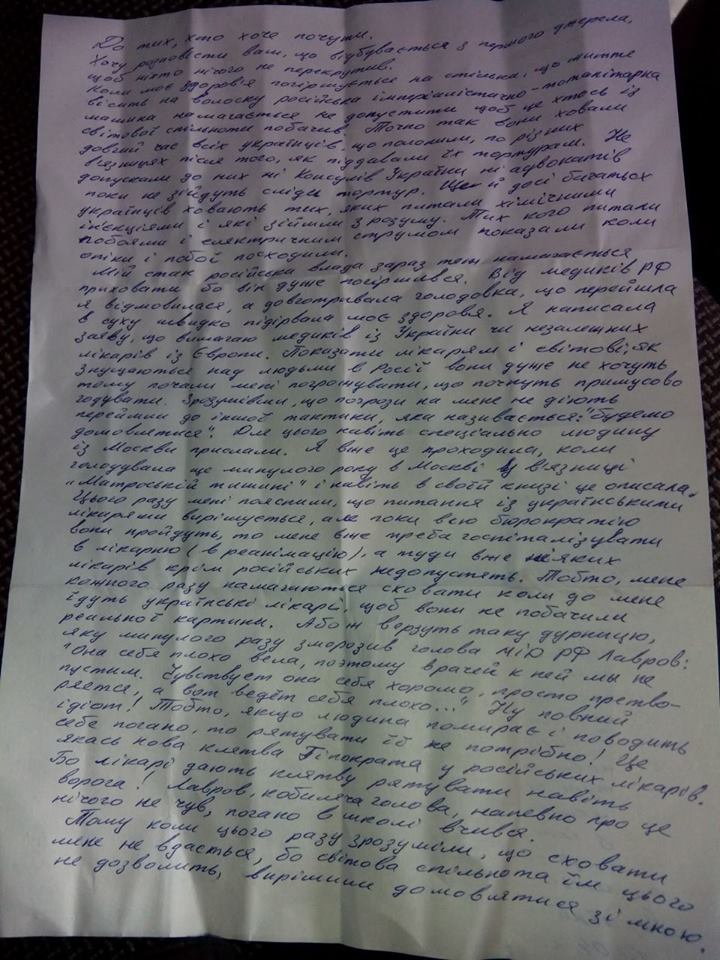 До тих, хто хоче почути.
Хочу розповісти вам, що відбувається з першого джерела,
щоб ніхто нічого не перекрутив.
Коли моє здоров'я погіршується на стільки, що життя
висить на волоску російська імперіалістично-тоталітарна
машина намагається не допустити щоб це хтось із
світової спільноти побачив. Точно так вони ховали
довгий час всіх українців, що полонили, по різних
вязницях після того, як піддавали їх тортурам. Не
допускали до них ні Консулів України ні адвокатів
поки не зійдуть сліди тортур. Ще й досі багатьох
українців ховають тих, яких питали хімічними
ін'єкціями і які зійшли з розуму. Тих кого питали
побоями і електричним струмом показали коли
опіки і побої посходили.
Мій стан російська влада зараз теж намагається
приховати бо він дуже погіршився. Від медиків РФ
я відмовилася, а довготривала голодовка, що перейшла
в суху швидко підірвала моє здоров'я. Я написала
заяву, що вимагаю медиків із України чи незалежних
лікарів із Європи. Показати лікарям і світові, як
знущаються над людьми в Росії вони дуже не хочуть
тому почали мені погрожувати, що почнуть примусово
годувати. Зрозумівши, що погрози на мене не діють
перейшли до іншої тактики, яка називається: "будемо
домовлятися". Для цього навіть спеціально людину
із Москви прислали. Я вже це проходила, коли
голодувала ще минулого року в Москві у в'язниці
„Матроській тишині" і навіть в своїй книзі це описала.
Цього разу мені пояснили, що питання із українськими
лікарями вирішується, але поки всю бюрократію
вони пройдуть, то мене вже треба госпіталізувати
в лікарню (в реанімацію), а туди вже ніяких
лікарів крім російських недопустять. Тобто, мене
кожного разу намагаються сховати коли до мене
їдуть українські лікарі, щоб вони не побачили
реальної картини. Або ж верзуть таку дурницю,
яку минулого разу зморозив голова МЮ РФ Лавров:
"Она себя плохо вела, поэтому врачей к ней мы не
пустим. Чувствует она себя хорошо, просто претво-
ряется, а вот ведёт себя плохо..." Ну повний
ідіот! Тобто, якщо людина помирає і поводить
себе погано, то рятувати її не потрібно! Це
якась нова клятва Гіпократа у російських лікарів.
Бо лікарі дають клятву рятувати навіть
ворога! Лавров, кобиляча голова, напевно про це
нічого не чув, погано в школі вчився.
Тому коли цього разу зрозуміли, що сховати
мене не вдасться, бо світова спільнота їм цього
не дозволить, вирішили домовлятися зі мною.